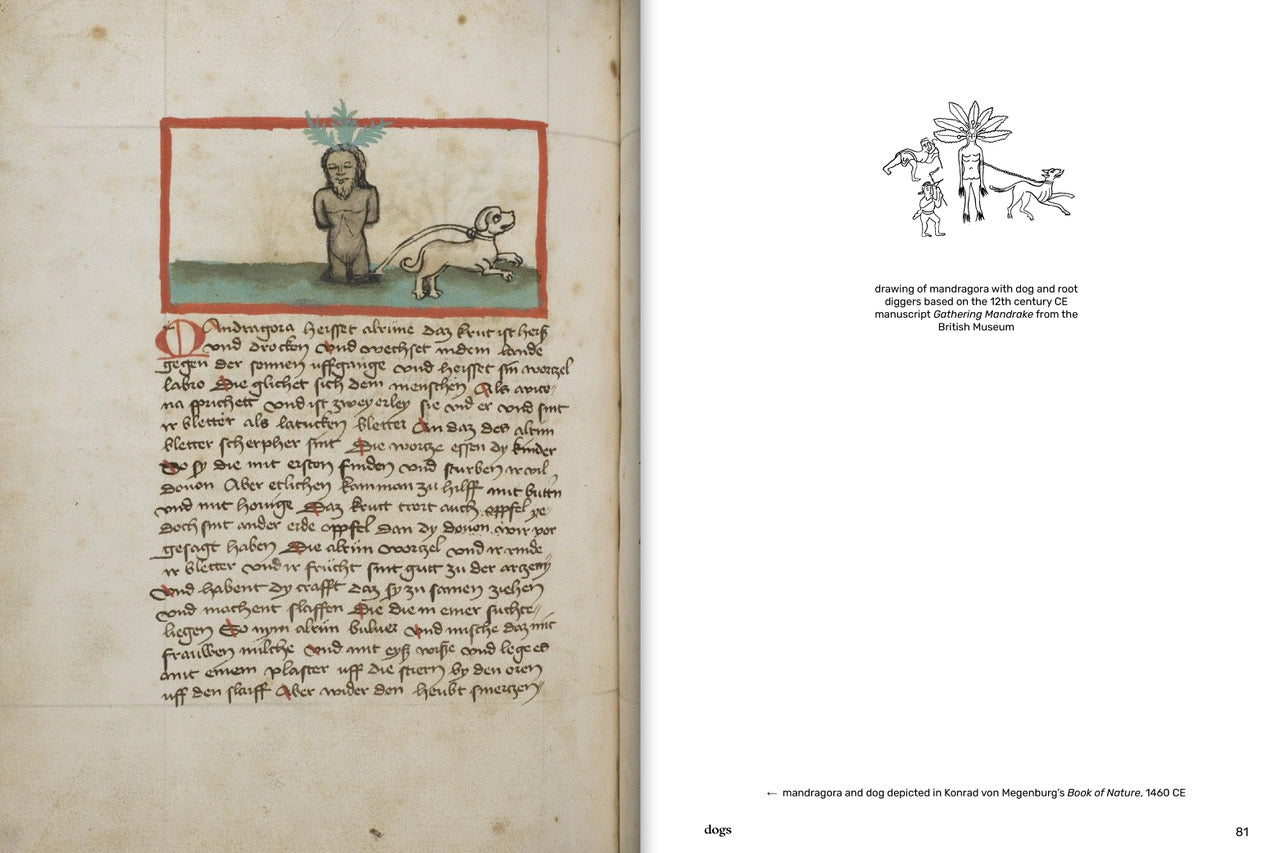 Mandragora heisset alrune daz krut ist heiß
vnd drocken Vnd wechset in dem lande
gegen der sonnen uffgange vnd heisset sin wortzel
labro Die glichet sich dem menschen Als avice-
na sprichett vnd ist zweyerley sie vnd er vnd sint
ir bletter als latucken bletter An daz des alrün
bletter scherpher sint Die wortze essen dy kinder
So sy die mit ersten finden vnd sturben ir vil
douon Aber etlichen kamman zu hilff mit buttn
vnd mit honige Daz krutt trett auch öppfel ye-
doch sint ander erde öppfel dan dy douon wir vor
gesagt haben Die alrün wortzel vnd ir rinde
ir bletter vnd ir frücht sint gutt zu der artzeny
Vnd habent dy crafft daz sy zu samen ziehen
vnd machent slaffen Die die in einer suchte
liegen So nym alrün buluer Vnd mische daz mit
frauwen milche Vnd mit eyß wiße vnd lege es
mit einem plaster uff die stiern by den oren
uff den slaiff Aber wider den heubt smertzen
drawing of mandragora with dog and root
diggers based on the 12th century CE
manuscript Gathering Mandrake from the
British Museum
← mandragora and dog depicted in Konrad von Megenburg's Book of Nature, 1460 CE
dogs
81